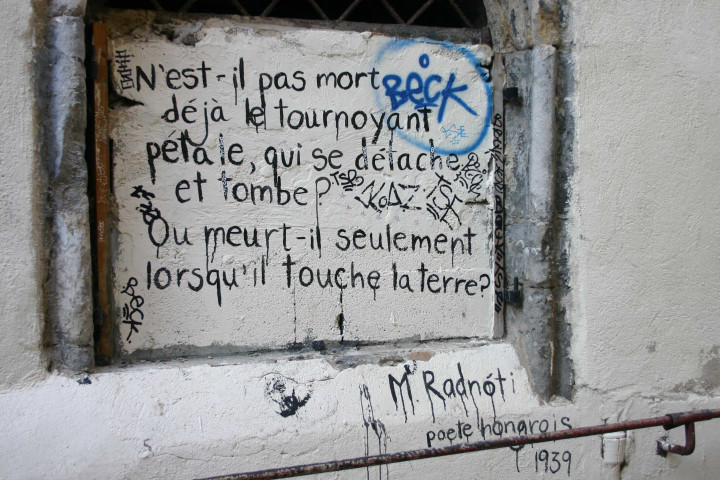 N'est-il pas mort
BECK
déjà le tournoyant
pétale, qui se détache,
et tombe?
KOAZ
Ou meurt-il seulement
lorsqu'il touche la terre?
M. Radnóti
poete hongrois
1939